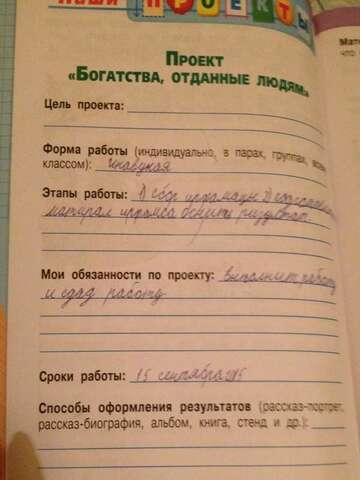 Наши ПРОЕКТЫ
ПРОЕКТ
«БОГАТСТВА, ОТДАННЫЕ ЛЮДЯМ»
Цель проекта:
Форма работы (индивидуально, в парах, группах, всем
классом):
Этапы работы: 1) сбор
материал
Мои обязанности по проекту: выполнит работу
и сдад работу
Сроки работы: 15 сентября
Способы оформления результатов (рассказ-портрет,
рассказ-биография, альбом, книга, стенд и др.):
Мате
что